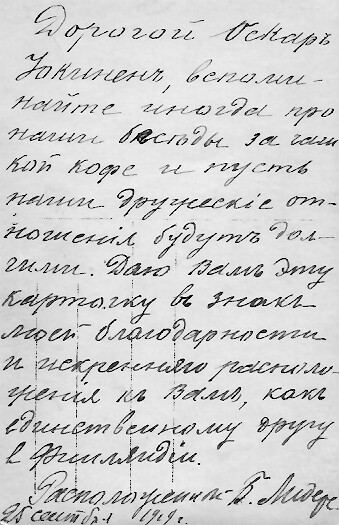 Дорогой Оскаръ
Іокиненъ, вспоми-
найте иногда про
наши бесѣды за чаш
кой кофе и пусть
наши дружескіе от-
ношенія будутъ дол-
гими. Даю Вамъ эту
карточку въ знакъ
моей благодарности
и искренняго располо-
женія къ Вамъ, какъ
единственному другу
в Финляндіи.
Расположенной Б.
25 сентября 1919 г.